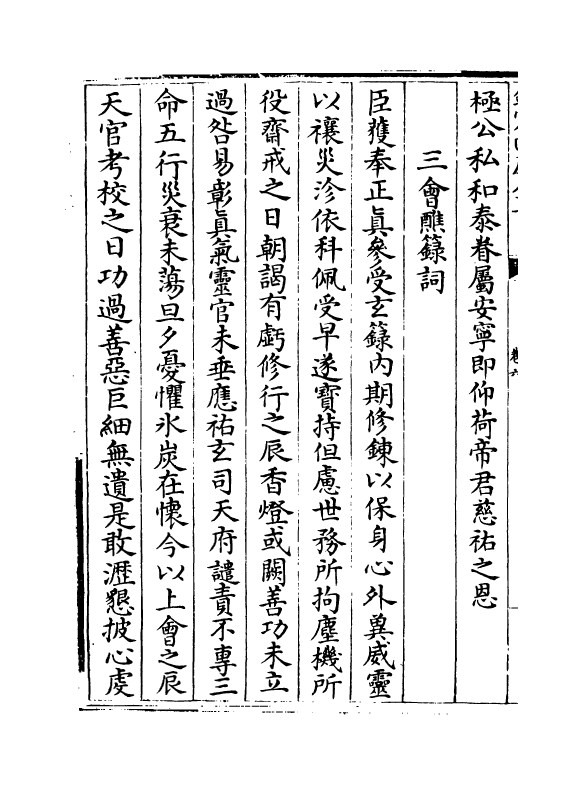 極公私和泰眷屬安寧即仰荷帝君慈祐之恩
三會醮籙詞
臣獲奉正真參受玄籙內期修鍊以保身心外兾威靈
以禳災沴依科佩受早遂寶持但慮世務所拘塵機所
役齋戒之日朝謁有虧修行之辰香燈或闕善功未立
過咎易彰真氣靈官未垂應祐玄司天府譴責不專三
命五行災衰未蕩旦夕憂懼氷炭在懷今以上會之辰
天官考校之日功過善惡巨細無遺是敢瀝懇披心虔
卷六